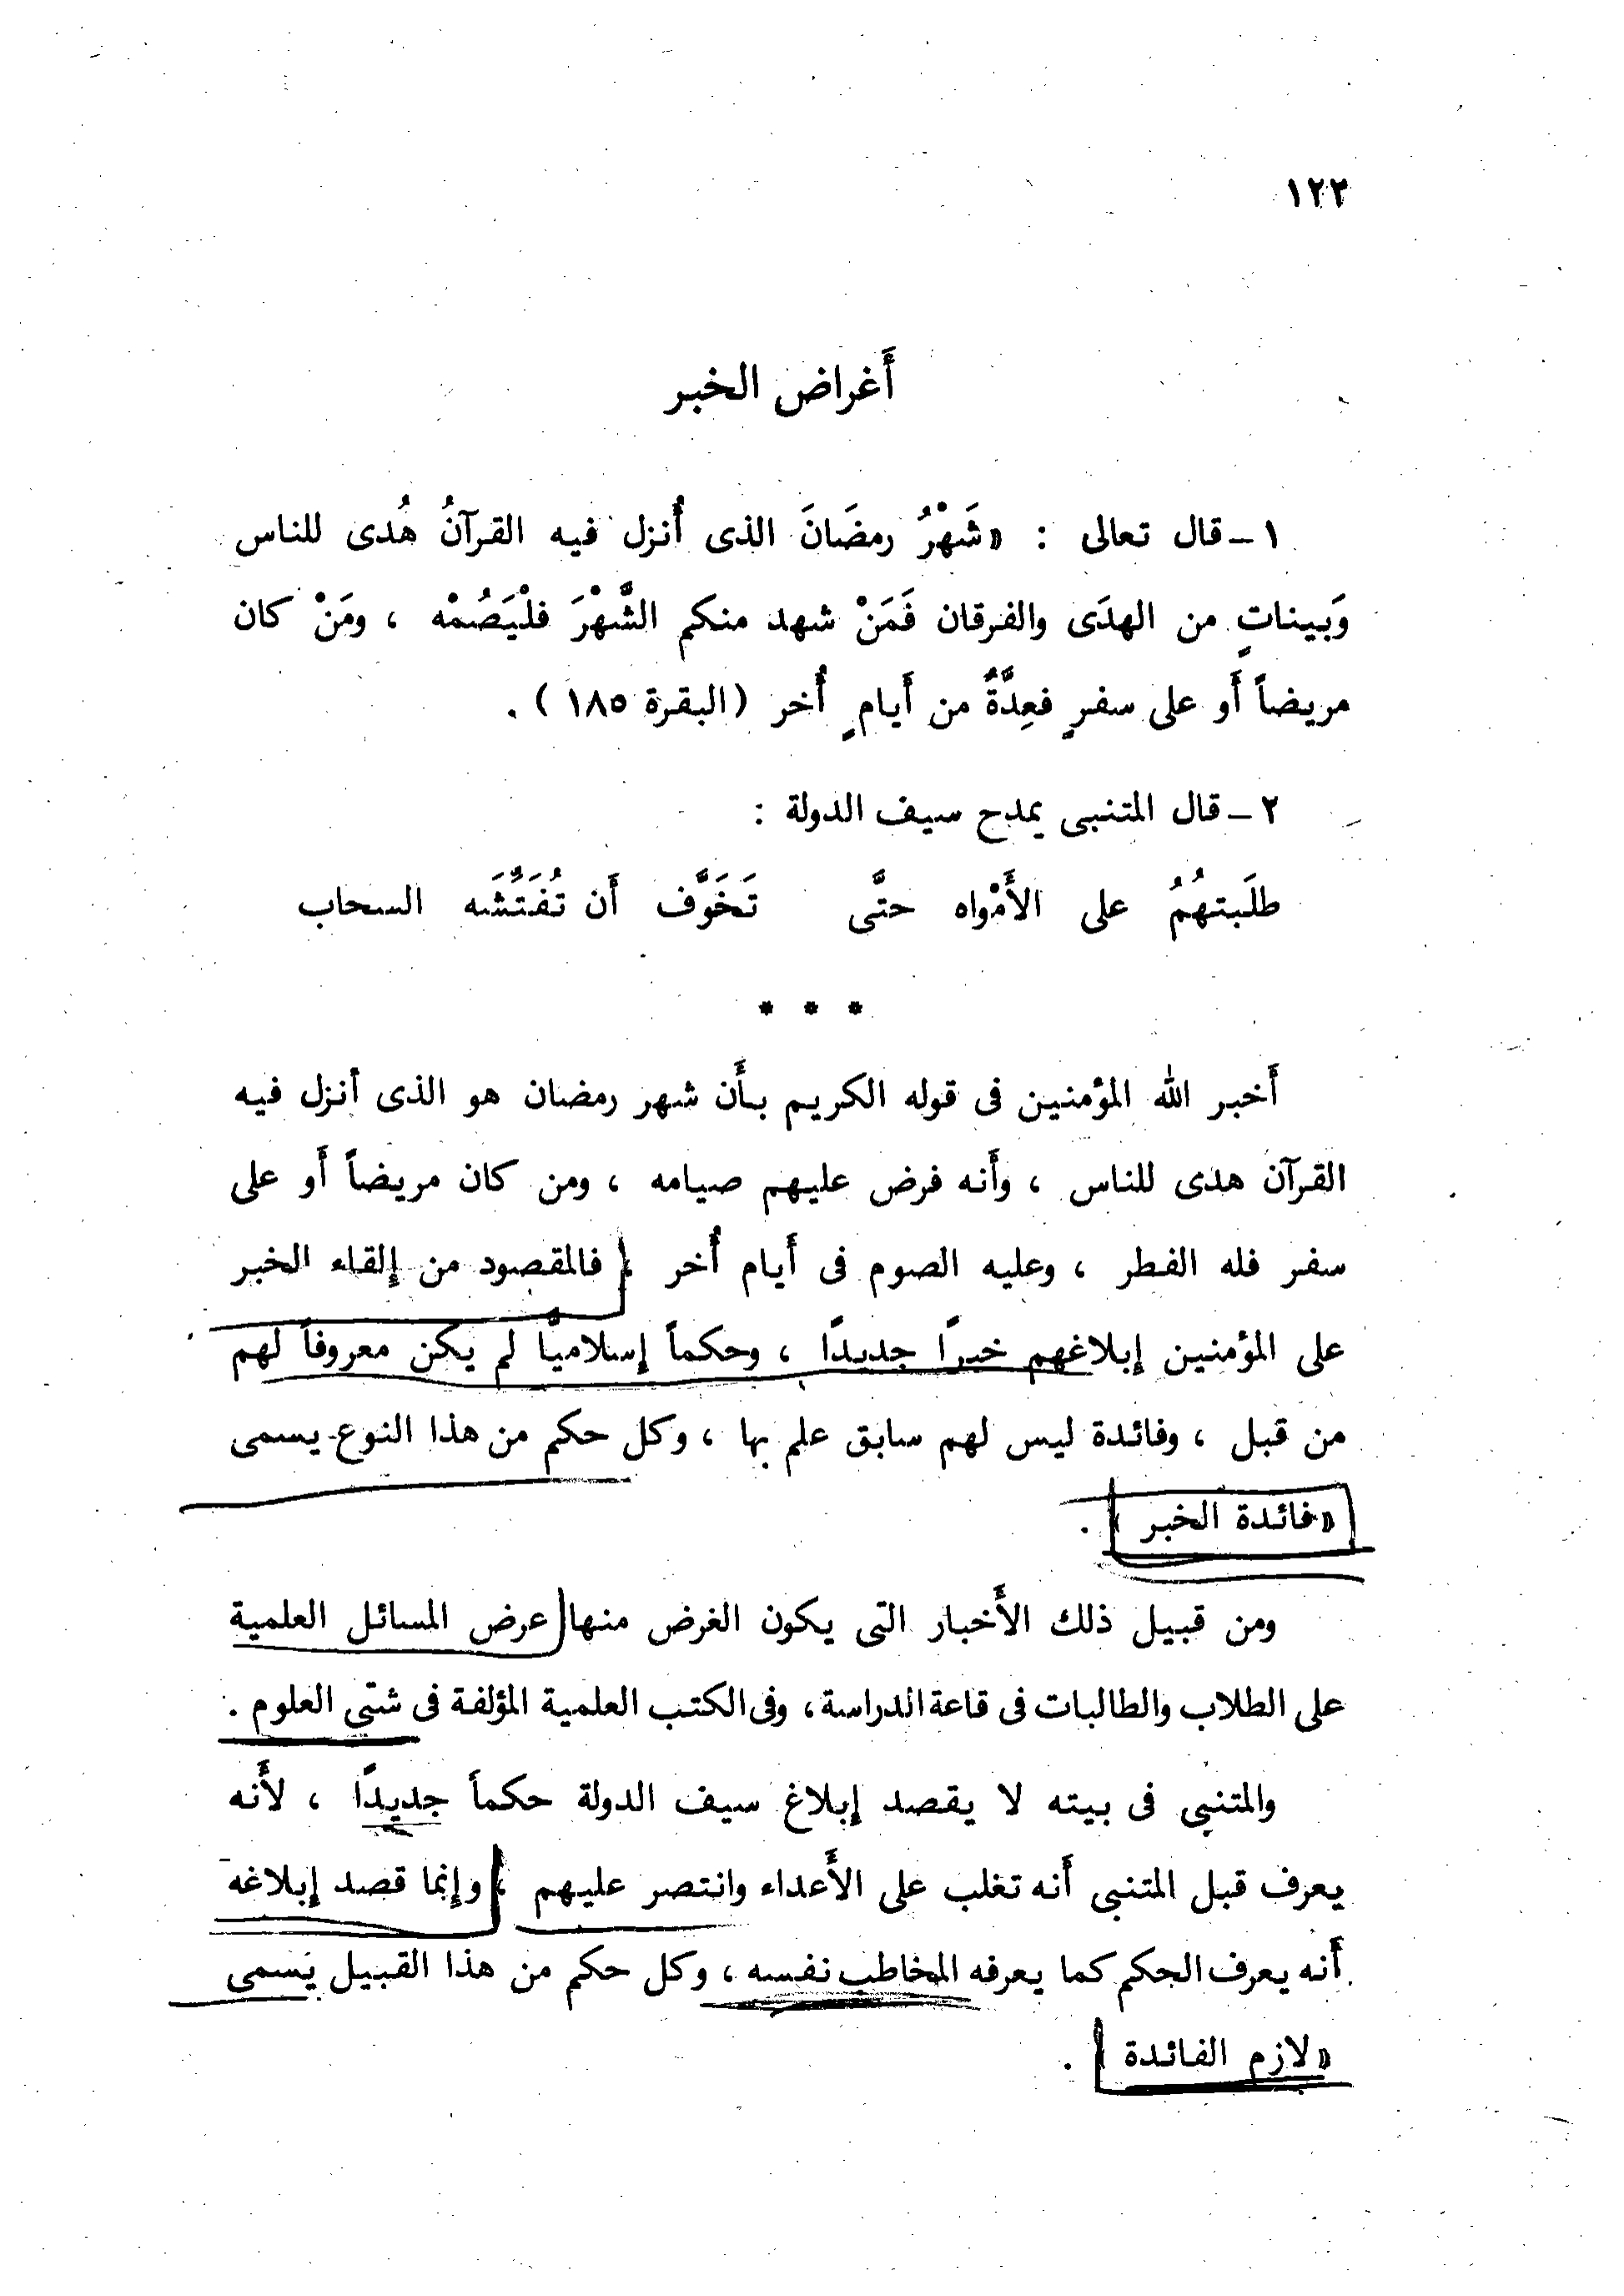 ١٢٢
أَغراض الخبر
١ - قال تعالى : «شَهْرُ رمضَانَ الذى أُنزل فيه القرآنُ هُدى للناس
وَبيناتٍ من الهدَى والفرقان فَمَنْ شهد منكم الشَّهْرَ فلْيَصُمْه ، ومَنْ كان
مريضاً أَو على سفرٍ فعِدَّةٌ من أَيامٍ أُخر (البقرة ١٨٥) .
٢ - قال المتنبى يمدح سيف الدولة :
طلَبتهُمُ على الأَمْواه حتَّى تَخَوَّف أَن تُفَتِّشَه السحاب
* * *
أَخبر الله المؤمنين فى قوله الكريم بأَن شهر رمضان هو الذى أنزل فيه
القرآن هدى للناس ، وأَنه فرض عليهم صيامه ، ومن كان مريضاً أَو على
سفر فله الفطر ، وعليه الصوم فى أَيام أُخر ، فالمقصود من إلقاء الخبر
على المؤمنين إبلاغهم خبرًا جديدًا ، وحكماً إسلاميًّا لم يكن معروفاً لهم
من قبل ، وفائدة ليس لهم سابق علم بها ، وكل حكم من هذا النوع يسمى
«فائدة الخبر» .
ومن قبيل ذلك الأَخبار التى يكون الغرض منها عرض المسائل العلمية
على الطلاب والطالبات فى قاعة الدراسة ، وفى الكتب العلمية المؤلفة فى شتى العلوم .
والمتنبى فى بيته لا يقصد إبلاغ سيف الدولة حكماً جديدًا ، لأَنه
يعرف قبل المتنبى أَنه تغلب على الأَعداء وانتصر عليهم ، وإنما قصد إبلاغه
أَنه يعرف الحكم كما يعرفه المخاطب نفسه ، وكل حكم من هذا القبيل يسمى
«لازم الفائدة» .